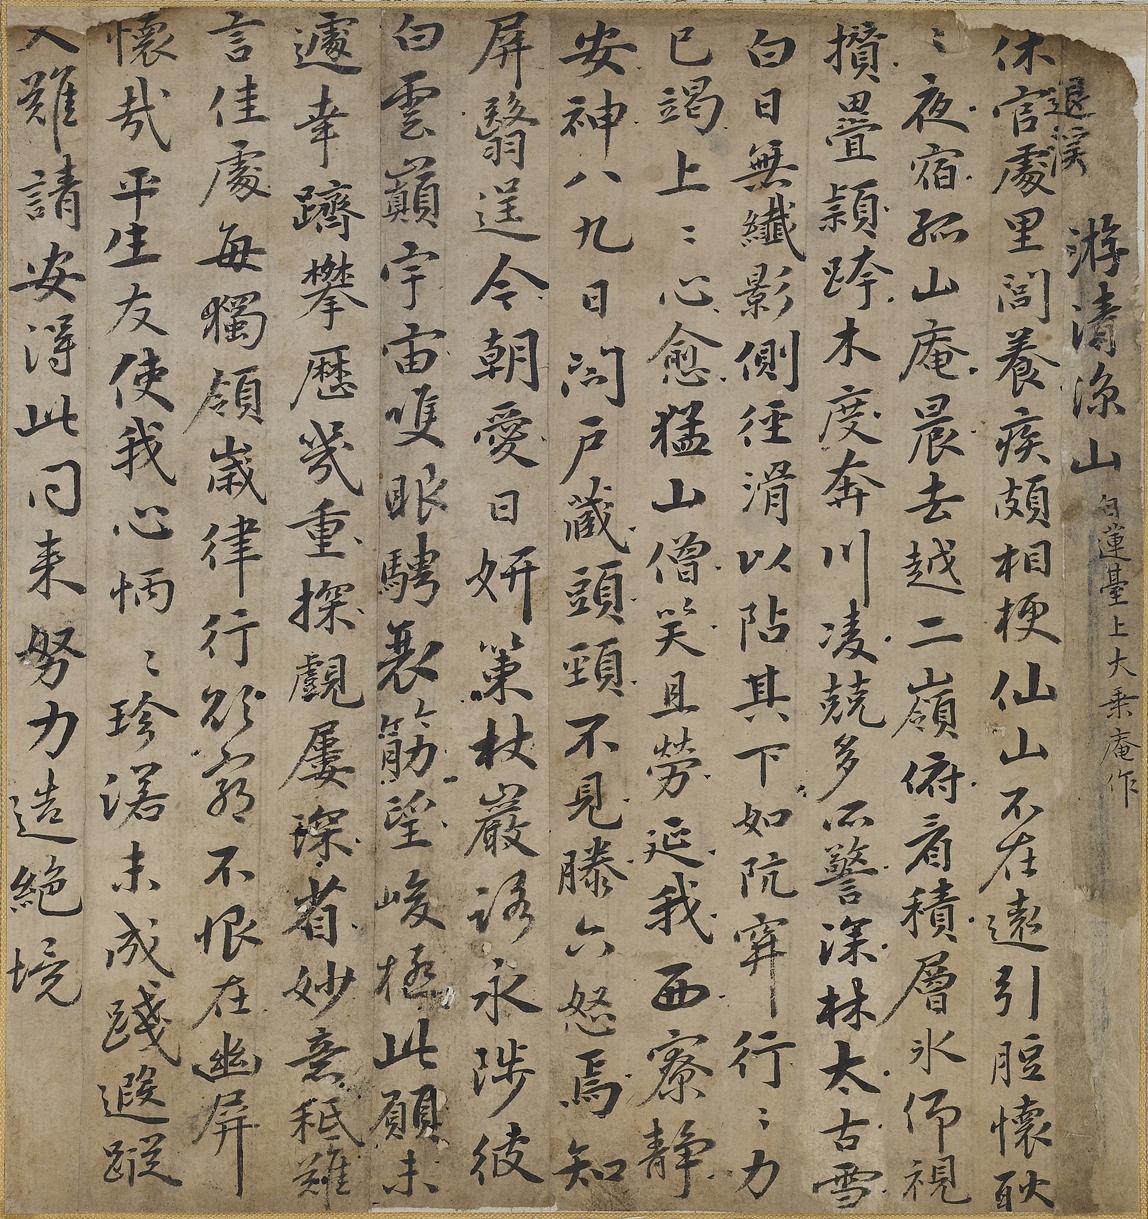 退溪
游清涼山 白蓮臺上大乘庵作
休官處里閭養疾頗相梗仙山不在遠引脰懷耿
〻夜宿孤山庵晨去越二嶺俯看積層氷仰視
攢疊穎跨木度奔川凌兢多所警深林太古雪
白日無纖影側徑滑以阽其下如阬穽行〻力
已竭上〻心愈猛山僧笑且勞延我西寮靜
安神八九日閉戶藏頭頸不見滕六怒焉知
屏翳逞今朝愛日妍策杖巖路永陟彼
白雲巔宇宙雙眼騁衰筋望峻極此願未
遽幸躋攀歷幾重探覰屢深省妙意秪難
言佳處每獨領歲律行欲窮不恨在幽屏
懷哉平生友使我心怲〻珍諾未成踐遐蹤
又難請安得此同來努力造絕境